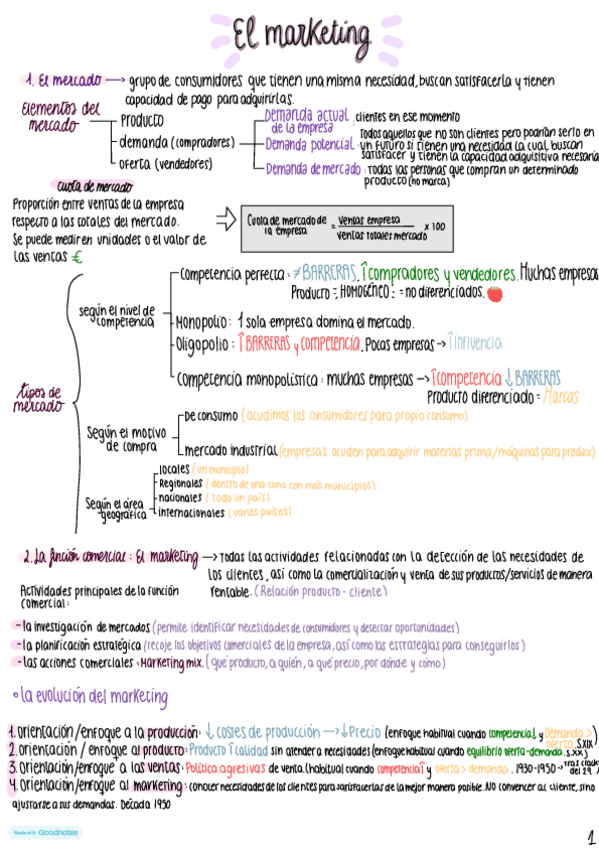 El marketing
1. El mercado → grupo de consumidores que tienen una misma necesidad, buscan satisfacerla y tienen
capacidad de pago para adquirirlas.
Elementos del
mercado
Producto
demanda (compradores)
oferta (vendedores)
Demanda actual
de la empresa : clientes en ese momento
Demanda potencial : Todos aquellos que no son clientes pero podrían serlo en
un futuro si tienen una necesidad la cual buscan
satisfacer y tienen la capacidad adquisitiva necesaria
Demanda de mercado : todas las personas que compran un determinado
producto (no marca)
cuota de mercado
Proporción entre ventas de la empresa
respecto a las totales del mercado.
Se puede medir en unidades o el valor de
las ventas €
Cuota de mercado de
la empresa = ventas empresa
ventas totales mercado x 100
tipos de
mercado
según el nivel de
competencia
Competencia perfecta : ≠ BARRERAS, ↑compradores y vendedores. Muchas empresas
Producto = HOMOGÉNEO = no diferenciados.
Monopolio : 1 sola empresa domina el mercado.
Oligopolio : ↑BARRERAS y competencia. Pocas empresas → ↑influencia
Competencia monopolística : muchas empresas → ↑competencia ↓BARRERAS
Producto diferenciado = Marcas
Según el motivo
de compra
De consumo (acudimos los consumidores para propio consumo)
mercado industrial (empresas acuden para adquirir materias prima/máquinas para producir)
Según el área
geográfica
locales (un municipio)
Regionales (dentro de una zona con más municipios)
nacionales (todo un país)
internacionales (varios países)
2. La función comercial : El marketing → Todas las actividades relacionadas con la detección de las necesidades de
los clientes, así como la comercialización y venta de sus productos/servicios de manera
rentable. (Relación producto - cliente)
Actividades principales de la función
comercial :
- la investigación de mercados (permite identificar necesidades de consumidores y detectar oportunidades)
- la planificación estratégica (recoje los objetivos comerciales de la empresa, así como las estrategias para conseguirlos)
- las acciones comerciales • Marketing mix. (qué producto, a quién, a qué precio, por dónde y cómo)
• la evolución del marketing
1. orientación/enfoque a la producción: ↓costes de producción → ↓Precio (enfoque habitual cuando competencia↓ y Demanda > oferta. S.XIX)
2. orientación / enfoque al producto: Producto ↑calidad sin atender a necesidades (enfoque habitual cuando equilibrio oferta-demanda. S.XX)
3. Orientación/enfoque a las ventas: Política agresivas de venta. (habitual cuando competencia↑ y oferta > demanda. 1930-1950 → tras crack del 29)
4. orientación/enfoque al marketing : conocer necesidades de los clientes para satisfacerlas de la mejor manera posible. NO convencer al cliente, sino
ajustarse a sus demandas. Década 1950
Made with Goodnotes
1